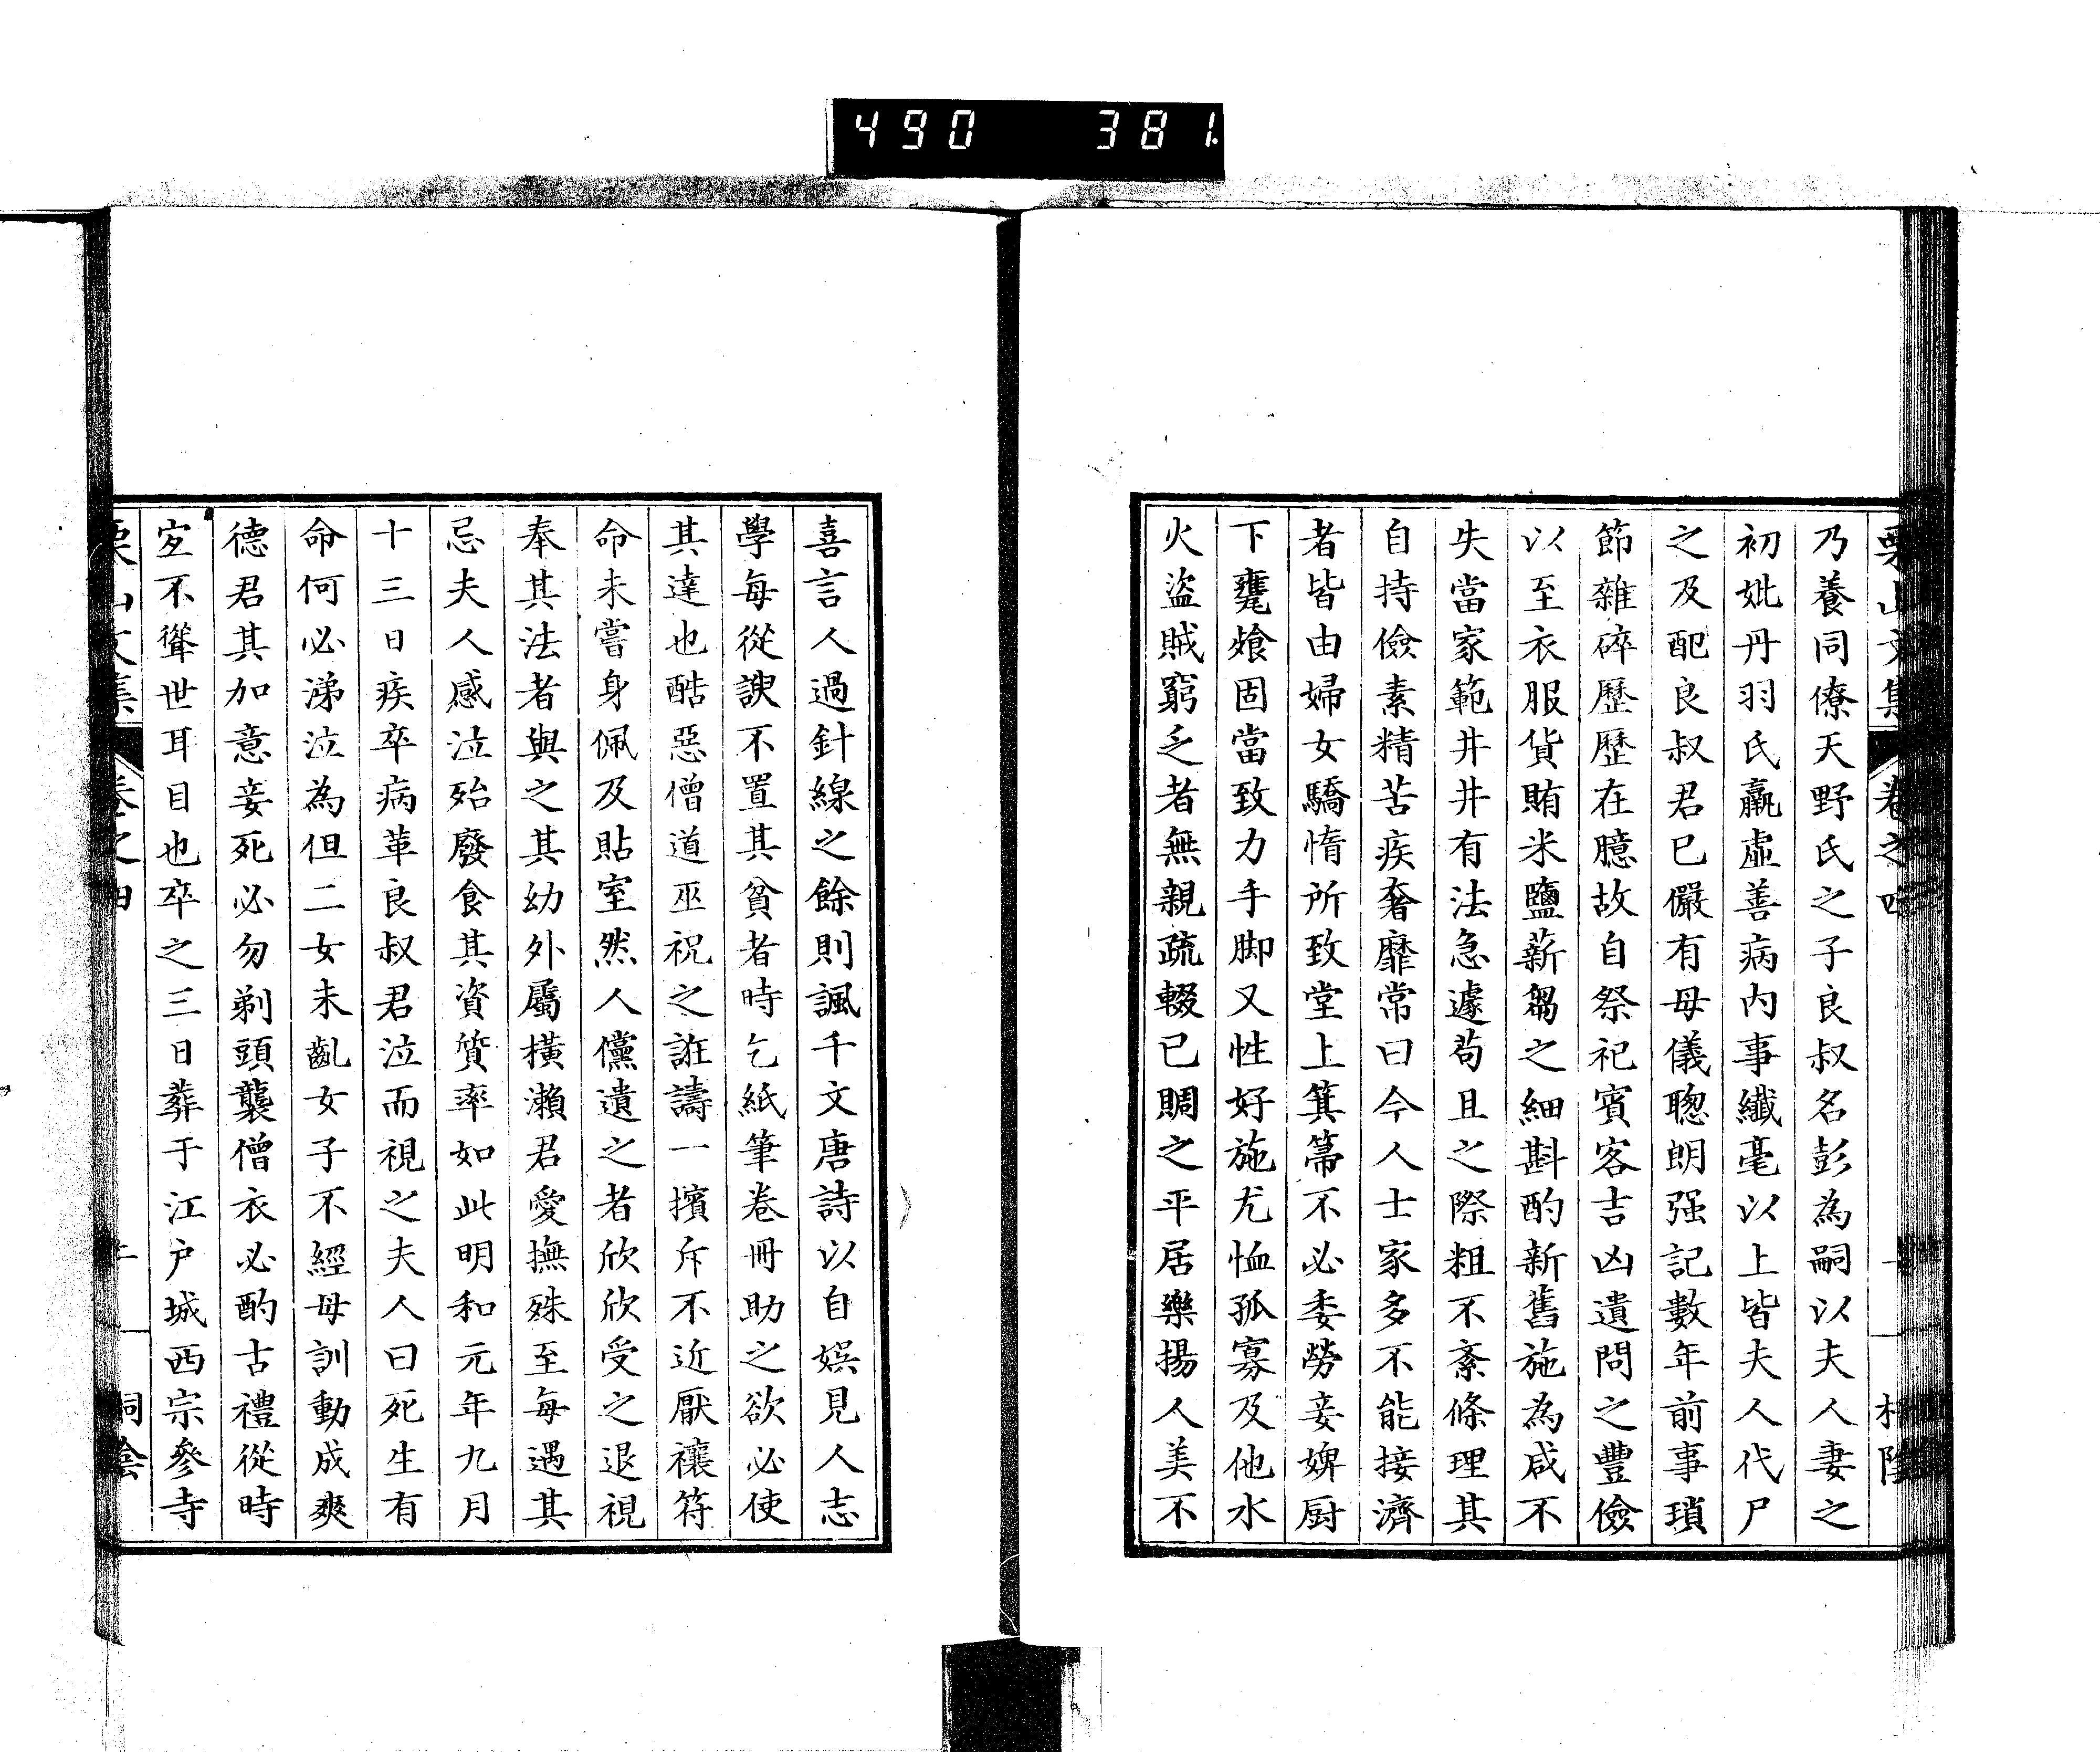 490 381
乃養同僚天野氏之子良叔名彭為嗣以夫人妻之
初妣丹羽氏羸虛善病內事纖毫以上皆夫人代尸
之及配良叔君已儼有母儀聰朗强記數年前事瑣
節雜碎歷歷在臆故自祭祀賓客吉凶遺問之豐儉
以至衣服貨賄米鹽薪芻之細斟酌新舊施為咸不
失當家範井井有法急遽苟且之際粗不紊條理其
自持儉素精苦疾奢靡常曰今人士家多不能接濟
者皆由婦女驕惰所致堂上箕箒不必委勞妾婢厨
下甕飧固當致力手脚又性好施尤恤孤寡及他水
火盜賊窮乏者無親疏輟已賙之平居樂揚人美不
喜言人過針線之餘則諷千文唐詩以自娯見人志
學每從諛不置其貧者時乞紙筆卷冊助之欲必使
其達也酷惡僧道巫祝之誑譸一擯斥不近厭禳符
命未嘗身佩及貼室然人儻遺之者欣欣受之退視
奉其法者與之其幼外屬橫瀨君愛撫殊至每遇其
忌夫人感泣殆廢食其資質率如此明和元年九月
十三日疾卒病革良叔君泣而視之夫人曰死生有
命何必涕泣為但二女未齓女子不經母訓動成爽
德君其加意妾死必勿剃頭襲僧衣必酌古禮從時
宐不聳世耳目也卒之三日葬于江户城西宗參寺